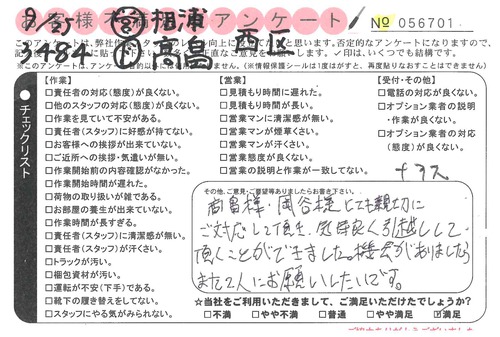 お客様満足度アンケート
№ 056701
9/25 ㊂相浦 西区
3484 高畠
このアンケートは、弊社作
※このアンケートは、
(※情報保護シールは1度はがすと、再度貼りなおすことはできません)
チェックリスト
【作業】
□責任者の対応(態度)が良くない。
□他のスタッフの対応(態度)が良くない。
□作業を見ていて不安がある。
□責任者(スタッフ)に好感が持てない。
□お客様への挨拶が出来ていない。
□ご近所への挨拶・気遣いが無い。
□作業開始前の内容確認がなかった。
□作業開始時間が遅れた。
□荷物の取り扱いが雑である。
□お部屋の養生が出来ていない。
□作業時間が長すぎる。
□責任者(スタッフ)に清潔感が無い。
□責任者(スタッフ)が汗くさい。
□トラックが汚い。
□梱包資材が汚い。
□運転が不安(下手)である。
□靴下の履き替えをしてない。
□スタッフにやる気がみられない。
【営業】
□見積もり時間に遅れた。
□見積もり時間が長い。
□営業マンに清潔感が無い。
□営業マンが煙草くさい。
□営業マンが汗くさい。
□営業態度が良くない。
□営業の説明と作業が一致してない。
【受付・その他】
□電話の対応が良くない。
□オプション業者の説明
・作業が良くない。
□オプション業者の対応
(態度)が良くない。
その他、ご意見・ご要望等ありましたらお書き下さい。
高畠様・岡谷様とても親切に
ご対応して頂き、気持良く引越しして
頂くことができました。機会がありましたら
また2人にお願いしたいです。
☆当社をご利用いただきまして、ご満足いただけたでしょうか?
□不満 □やや不満 □普通 □やや満足 ☑満足